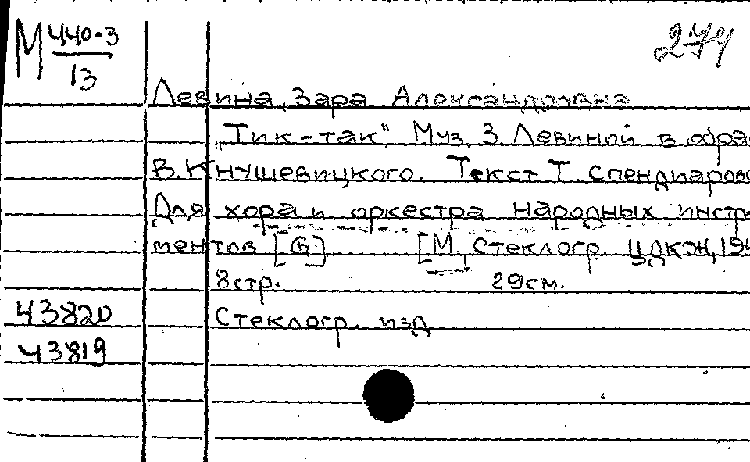 М 440-3
13
274
Левина, Зара Александровна
"Тик-так". Муз. З. Левиной в обра
В. Кнушевицкого. Текст Т. Спендиаров
Для хора и оркестра народных инстр
ментов [G] [М., Стеклогр. ЦДКЖ, 194
8 стр. 29 см.
43820 Стеклогр. изд
43819